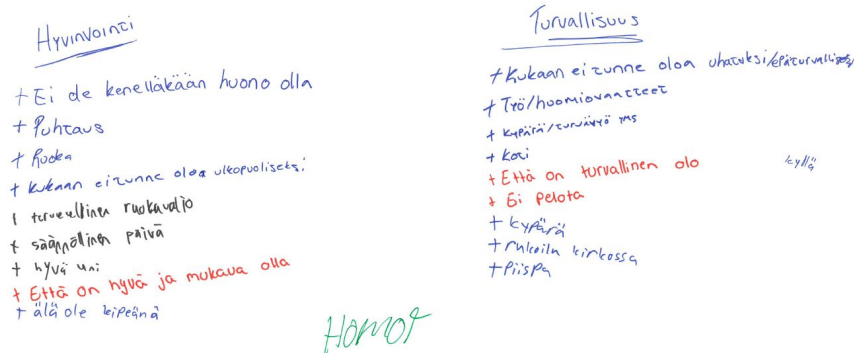 Hyvinvointi
+ Ei de kenelläkään huono olla
+ Puhtaus
+ Ruoka
+ Kukaan ei tunne oloa ulkopuoliseksi
+ terveellinen ruokavalio
+ säännöllinen päivä
+ hyvä uni
+ Että on hyvä ja mukava olla
+ älä ole kipeänä
Turvallisuus
+ Kukaan ei tunne oloa uhatuksi/epäturvalliseksi
+ Työ/huomiovaatteet
+ kypärä/turvavyö yms
+ Koti
+ Että on turvallinen olo kyllä
+ Ei pelota
+ kypärä
+ rukoilu kirkossa
+ Piispa
Homot